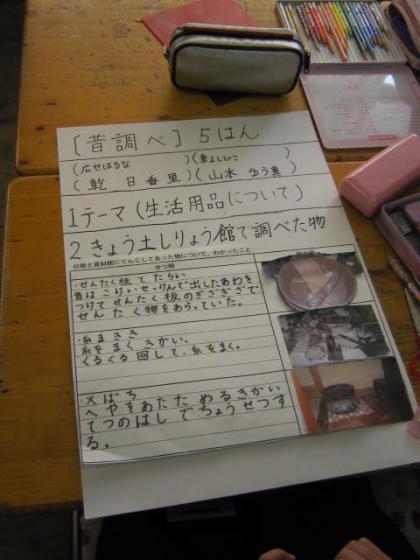 [昔調べ] 5はん
(広せはるな)(東よしひこ)
(乾 日香里)(山本 ゆう真)
1テーマ(生活用品について)
2きょう土しりょう館で調べた物
◎郷土資料館にてんじしてあった物について、わかったこと
せつ明
・せんたく板とたらい
昔はこけいせっけんで出したあわを
つけてせんたく板のぎざぎざで
せんたく物をあらっていた。
・糸まきき
糸をまくきかい。
くるくる回して、糸をまく。
・火ばち
へやをあたためるきかい
てつのはしでちょうせつす
る。